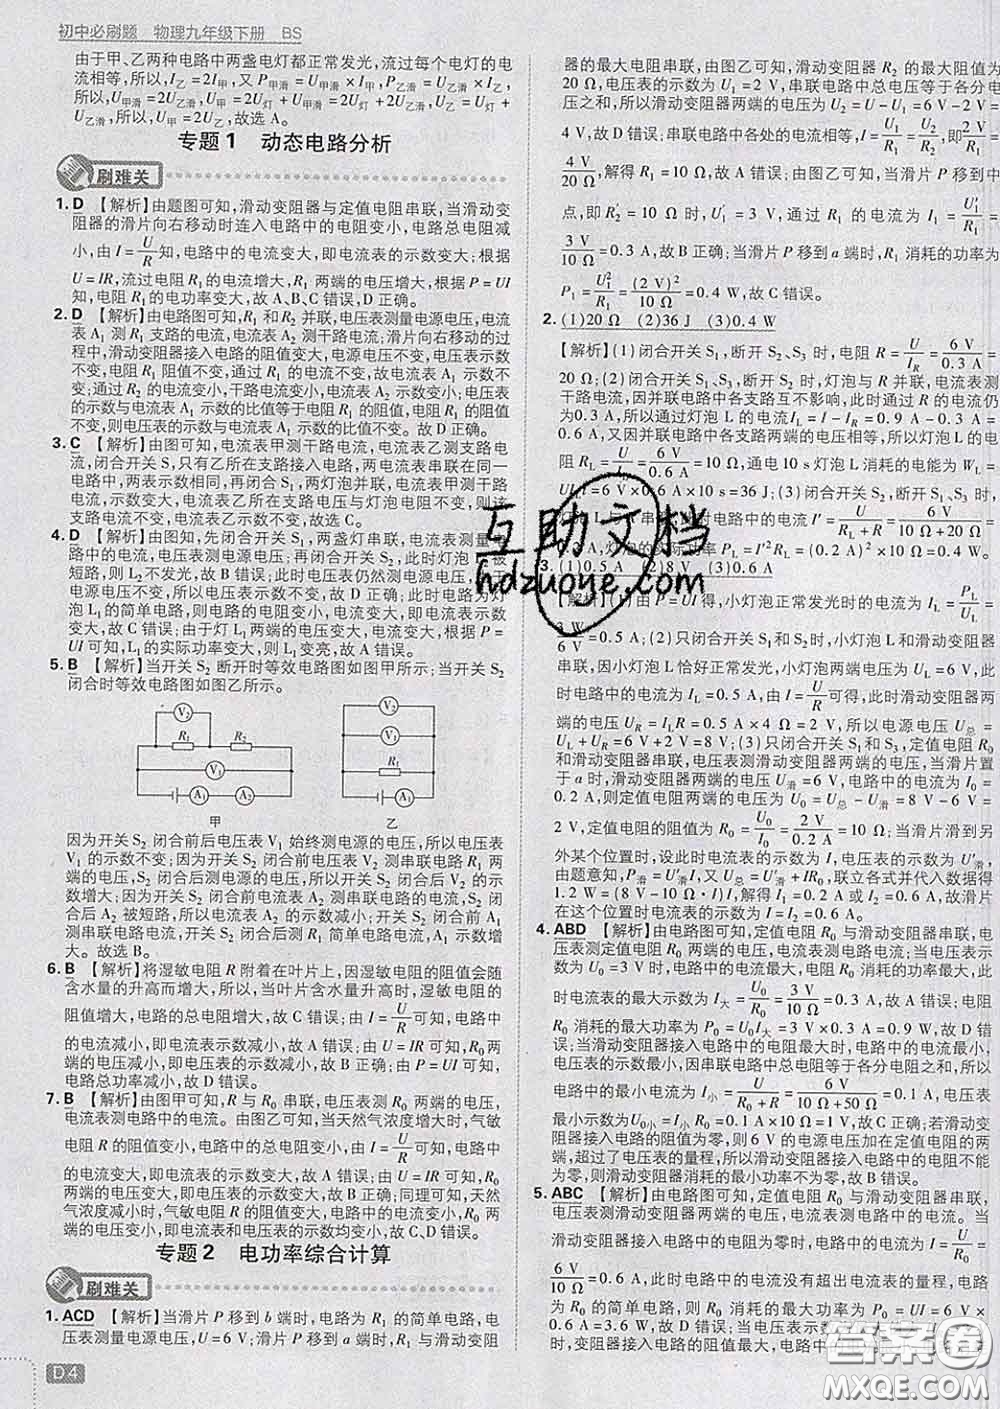 初中必刷题 物理九年级下册 BS
由于甲、乙两种电路中两盏电灯都正常发光,流过每个电灯的电
流相等,所以,I乙=2I甲,又P甲滑=U甲滑×I甲,P乙滑=U乙滑×I乙,
所以,U甲滑=2U乙滑,U甲=2U灯+U甲滑=2U灯+2U乙滑,U乙=U灯+
U乙滑,所以,U甲=2U乙,故选A。
专题1 动态电路分析
刷难关
1. D 【解析】由题图可知,滑动变阻器与定值电阻串联,当滑动变
阻器的滑片向右移动时连入电路中的电阻变小,电路总电阻减
小,由I=U/R知,电路中的电流变大,即电流表的示数变大;根据
U=IR,流过电阻R₁的电流增大,R₁两端的电压变大,根据P=UI
知,电阻R₁的电功率变大,故A、B、C错误,D正确。
2. D 【解析】由电路图可知,R₁和R₂并联,电压表测量电源电压,电流
表A₁测R₁支路的电流,电流表A₂测干路电流;滑片向右移动的过
程中,滑动变阻器接入电路的阻值变大,电源电压不变,电压表示数
不变,电阻R₁阻值不变,通过R₁的电流不变,则电流表A₁示数不
变;通过R₂的电流变小,干路电流变小,电流表A₂示数变小;电压表
的示数与电流表A₁示数的比值等于电阻R₁的阻值,电阻R₁的阻值
不变,则电压表的示数与电流表A₁示数的比值不变。故D正确。
3. C 【解析】由图可知,电流表甲测干路电流,电流表乙测支路电
流,闭合开关S,只有乙所在支路接入电路,两电流表串联在同一
电路中,两表示数相同,再闭合S₁,两支路并联,则电流表甲测干
路电流,示数变大,电流表乙所在支路电压与灯泡电阻不变,则该
支路电流不变,电流表乙示数不变,故选C。
4. D 【解析】由图知,先闭合开关S₁,两盏灯串联,电流表测量
路中的电流,电压表测电源电压;再闭合开关S₂,此时灯泡L₂被
短路,则L₂不发光,故A错误;此时电压表仍然测电源电压,
电压表示数不变,故C错误;再闭合开关S₂,此时电路为灯泡
L₁的简单电路,则电路的电阻变小,电路中的电流变大,即电流
表示数变大,故B错误;由于灯L₁两端的电压变大,根据P=
UI可知,L₁的实际功率变大,则L₁变亮,故D正确。
5. B 【解析】当开关S₂断开时等效电路图如图甲所示;当开关S₂
闭合时等效电路图如图乙所示。
V₂
R₁ R₂
V₁
A₁ A₂
甲
V₂
V₁
R₁
A₁
乙
因为开关S₂闭合前后电压表V₁始终测电源的电压,所以电压表
V₁的示数不变;因为开关S₂闭合前电压表V₂测串联电路R₁两
端的电压,S₂闭合后测电源的电压,所以开关S₂闭合后V₂的示
数增大;因为开关S₂闭合前A₂测串联电路的电流,开关S₂闭
合后A₂被短路,所以电流表A₂的示数减小;开关S₂闭合前A₁
测串联电路电流,开关S₂闭合后测R₁简单电路电流,示数变
大。故选B。
6. B 【解析】将湿敏电阻R附着在叶片上,因湿敏电阻的阻值会随
含水量的升高而增大,当植物含水量升高时,湿敏电阻的阻值增
大,电路的总电阻增大,故C错误;由I=U/R可知,电路中的电
流减小,即电流表示数减小,故B正确;由U=IR可知,R₀两
端的电压减小,即电压表的示数减小,故A错误;由P=UI可知,
电路总功率减小,故D错误。
7. B 【解析】由图甲可知,R与R₀串联,电压表测R₀两端的电压,
电流表测电路中的电流。由图乙可知,当天然气浓度增大时,气敏
电阻R的阻值变小,电路中的总电阻变小,由I=U/R可知,电路中
的电流变大,即电流表的示数变大,故A错误;由U=IR可知,R₀
两端的电压变大,即电压表的示数变大,故B正确;同理可知,天然
气浓度减小时,气敏电阻R的阻值变大,电路中的电流变小,R₀两
端的电压变小,即电流表和电压表的示数均变小,故C、D错误。
专题2 电功率综合计算
刷难关
1. ACD 【解析】当滑片P移到b端时,电路为R₁的简单电路,电
压表测量电源电压,U=6 V;滑片P移到a端时,R₁与滑动变阻
D4
器的最大电阻串联,由图乙可知,滑动变阻器R₂的最大阻值为
20 Ω,电压表的示数为U₁=2 V,串联电路中总电压等于各分电
压之和,所以滑动变阻器两端的电压为U₂=U-U₁=6 V-2 V=
4 V,故D正确;串联电路中各处的电流相等,I=U₁/R₁=U₂/R₂,即2 V/R₁=
4 V/20 Ω,解得R₁=10 Ω,故A正确;当滑片P移到中
点,即R₂′=10 Ω时,U₁′=3 V,通过R₁的电流为I₁=U₁′/R₁=
3 V/10 Ω=0.3 A,故B正确;当滑片P移到a端时,R₁消耗的功率为
P₁=U₁²/R₁=(2 V)²/10 Ω=0.4 W,故C错误。
2. (1)20 Ω (2)36 J (3)0.4 W
【解析】(1)闭合开关S₁,断开S₂、S₃时,电阻R=U/I_R=6 V/0.3 A=
20 Ω;(2)闭合开关S₁、S₃,断开S₂时,灯泡与R并联,电流表测量
干路电流,因并联电路中各支路互不影响,故此时R的电流仍
为0.3 A,所以通过灯泡L的电流I_L=I-I_R=0.9 A-0.3 A=
0.6 A,又因为并联电路中各支路两端的电压相等,所以灯泡L的电
阻R_L=U/I_L=6 V/0.6 A=10 Ω,通电10 s灯泡L消耗的电能为W_L=
UI_L t=6 V×0.6 A×10 s=36 J;(3)闭合开关S₂,断开S₁、S₃时,
灯泡L与R串联,此时电路中的电流I′=U/(R_L+R)=6 V/(10 Ω+20 Ω)=
0.2 A,灯泡的实际功率P_L=I′²R_L=(0.2 A)²×10 Ω=0.4 W。
3. (1)0.5 A (2)8 V (3)0.6 A
【解析】(1)由P=UI得,小灯泡正常发光时的电流为I_L=P_L/U_L=
3 W/6 V=0.5 A;(2)只闭合开关S₁和S₂时,小灯泡L和滑动变阻器
串联,因小灯泡L恰好正常发光,小灯泡两端电压为U_L=6 V,此
时电路中的电流为I_L=0.5 A,由I=U/R可得,此时滑动变阻器两
端的电压U_R=I_L R=0.5 A×4 Ω=2 V,所以电源电压U总=
U_L+U_R=6 V+2 V=8 V;(3)只闭合开关S₁和S₃,定值电阻R₀
和滑动变阻器串联,电压表测滑动变阻器两端的电压,当滑片置
于a时,滑动变阻器两端的电压U滑=6 V,电路中的电流为I₀=
0.2 A,则定值电阻两端的电压为U₀=U总-U滑=8 V-6 V=
2 V,定值电阻的阻值为R₀=U₀/I₀=2 V/0.2 A=10 Ω;当滑片滑到另
外某个位置时,设此时电流表的示数为I,电压表的示数为U′滑,
由题意知,P滑=U′滑I,又U总=U′滑+IR₀,联立各式并代入数据得
1.2 W=(8 V-10 Ω·I)I,解得I=0.2 A或I=0.6 A,故滑片
在这个位置时电流表的示数为I=0.6 A。
4. ABD 【解析】由电路图可知,定值电阻R₀与滑动变阻器串联,电
压表测定值电阻R₀两端的电压,电流表测电路中的电流。当电压
表示数最大时,电路中的电流最大,R₀消耗的功率最大,此
时电流表的最大示数为I大=U₀/R₀=3 V/10 Ω=0.3 A,故A错误;电阻
R₀消耗的最大功率为P₀=U₀I大=3 V×0.3 A=0.9 W,故D错
误;当滑动变阻器接入电路中的电阻最大时,电路中的电流最小,电压
表的示数最小,因串联电路中总电阻等于各分电阻之和,所以
电路中的最小电流为I小=U/(R₀+R)=6 V/(10 Ω+50 Ω)=0.1 A,电压表的
最小示数为U₀小=I小R₀=0.1 A×10 Ω=1 V,故C正确;若滑动
变阻器接入电路的阻值为零,则6 V的电源电压加在定值电阻的两端,
超过了电压表的量程,所以滑动变阻器接入电路中的阻值不能
为零,则滑动变阻器的滑片移动时消耗的功率不为零,故B错误。
5. ABC 【解析】由电路图可知,定值电阻R₀与滑动变阻器串联,
电压表测滑动变阻器两端的电压,电流表测电路中的电流。当滑
动变阻器接入电路中的电阻为零时,电路中的电流为I=U/R₀=
6 V/10 Ω=0.6 A,此时电路中的电流没有超出电流表的量程,
所以电路的总功率最大,则电路的最大功率为P大=UI=6 V×
0.6 A=3.6 W,故A错误;
互助文档
hdzuoye.com
答案圈
MXQE.COM